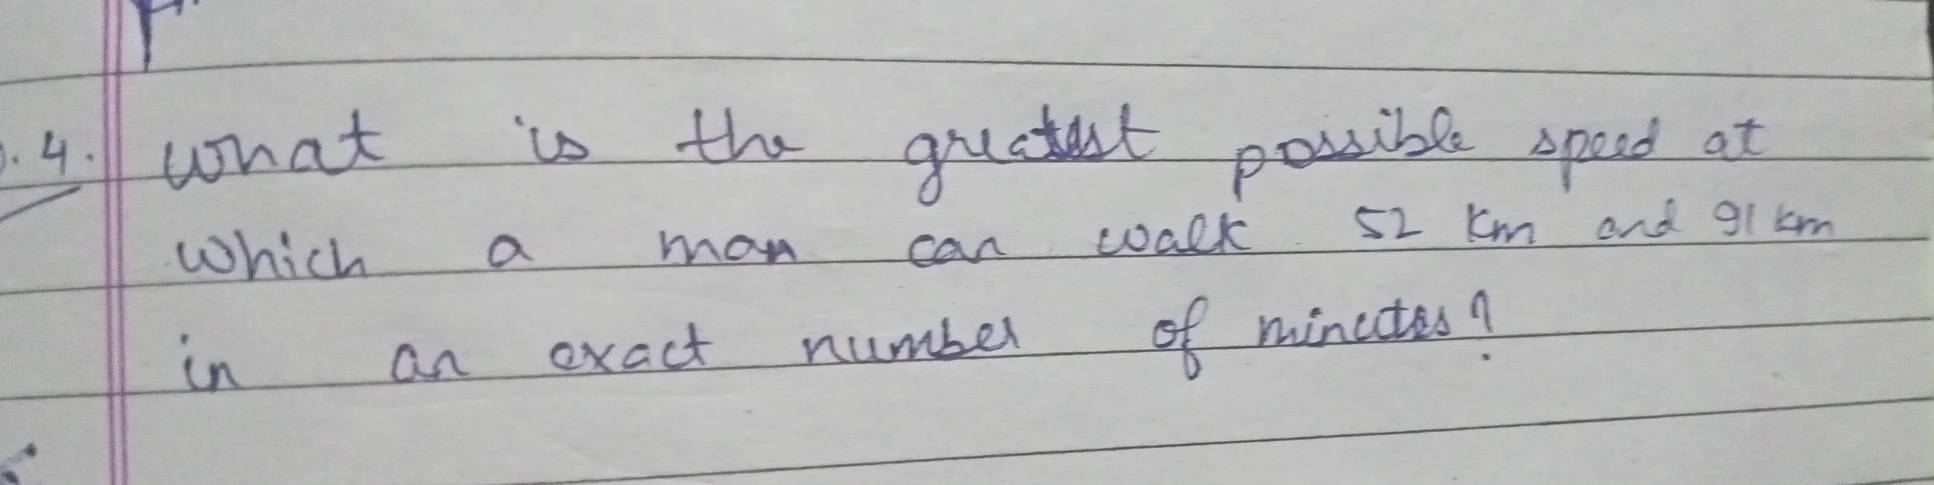 4. What is the greatest possible speed at
which a man can walk 52 km and 91 km
in an exact number of minutes?